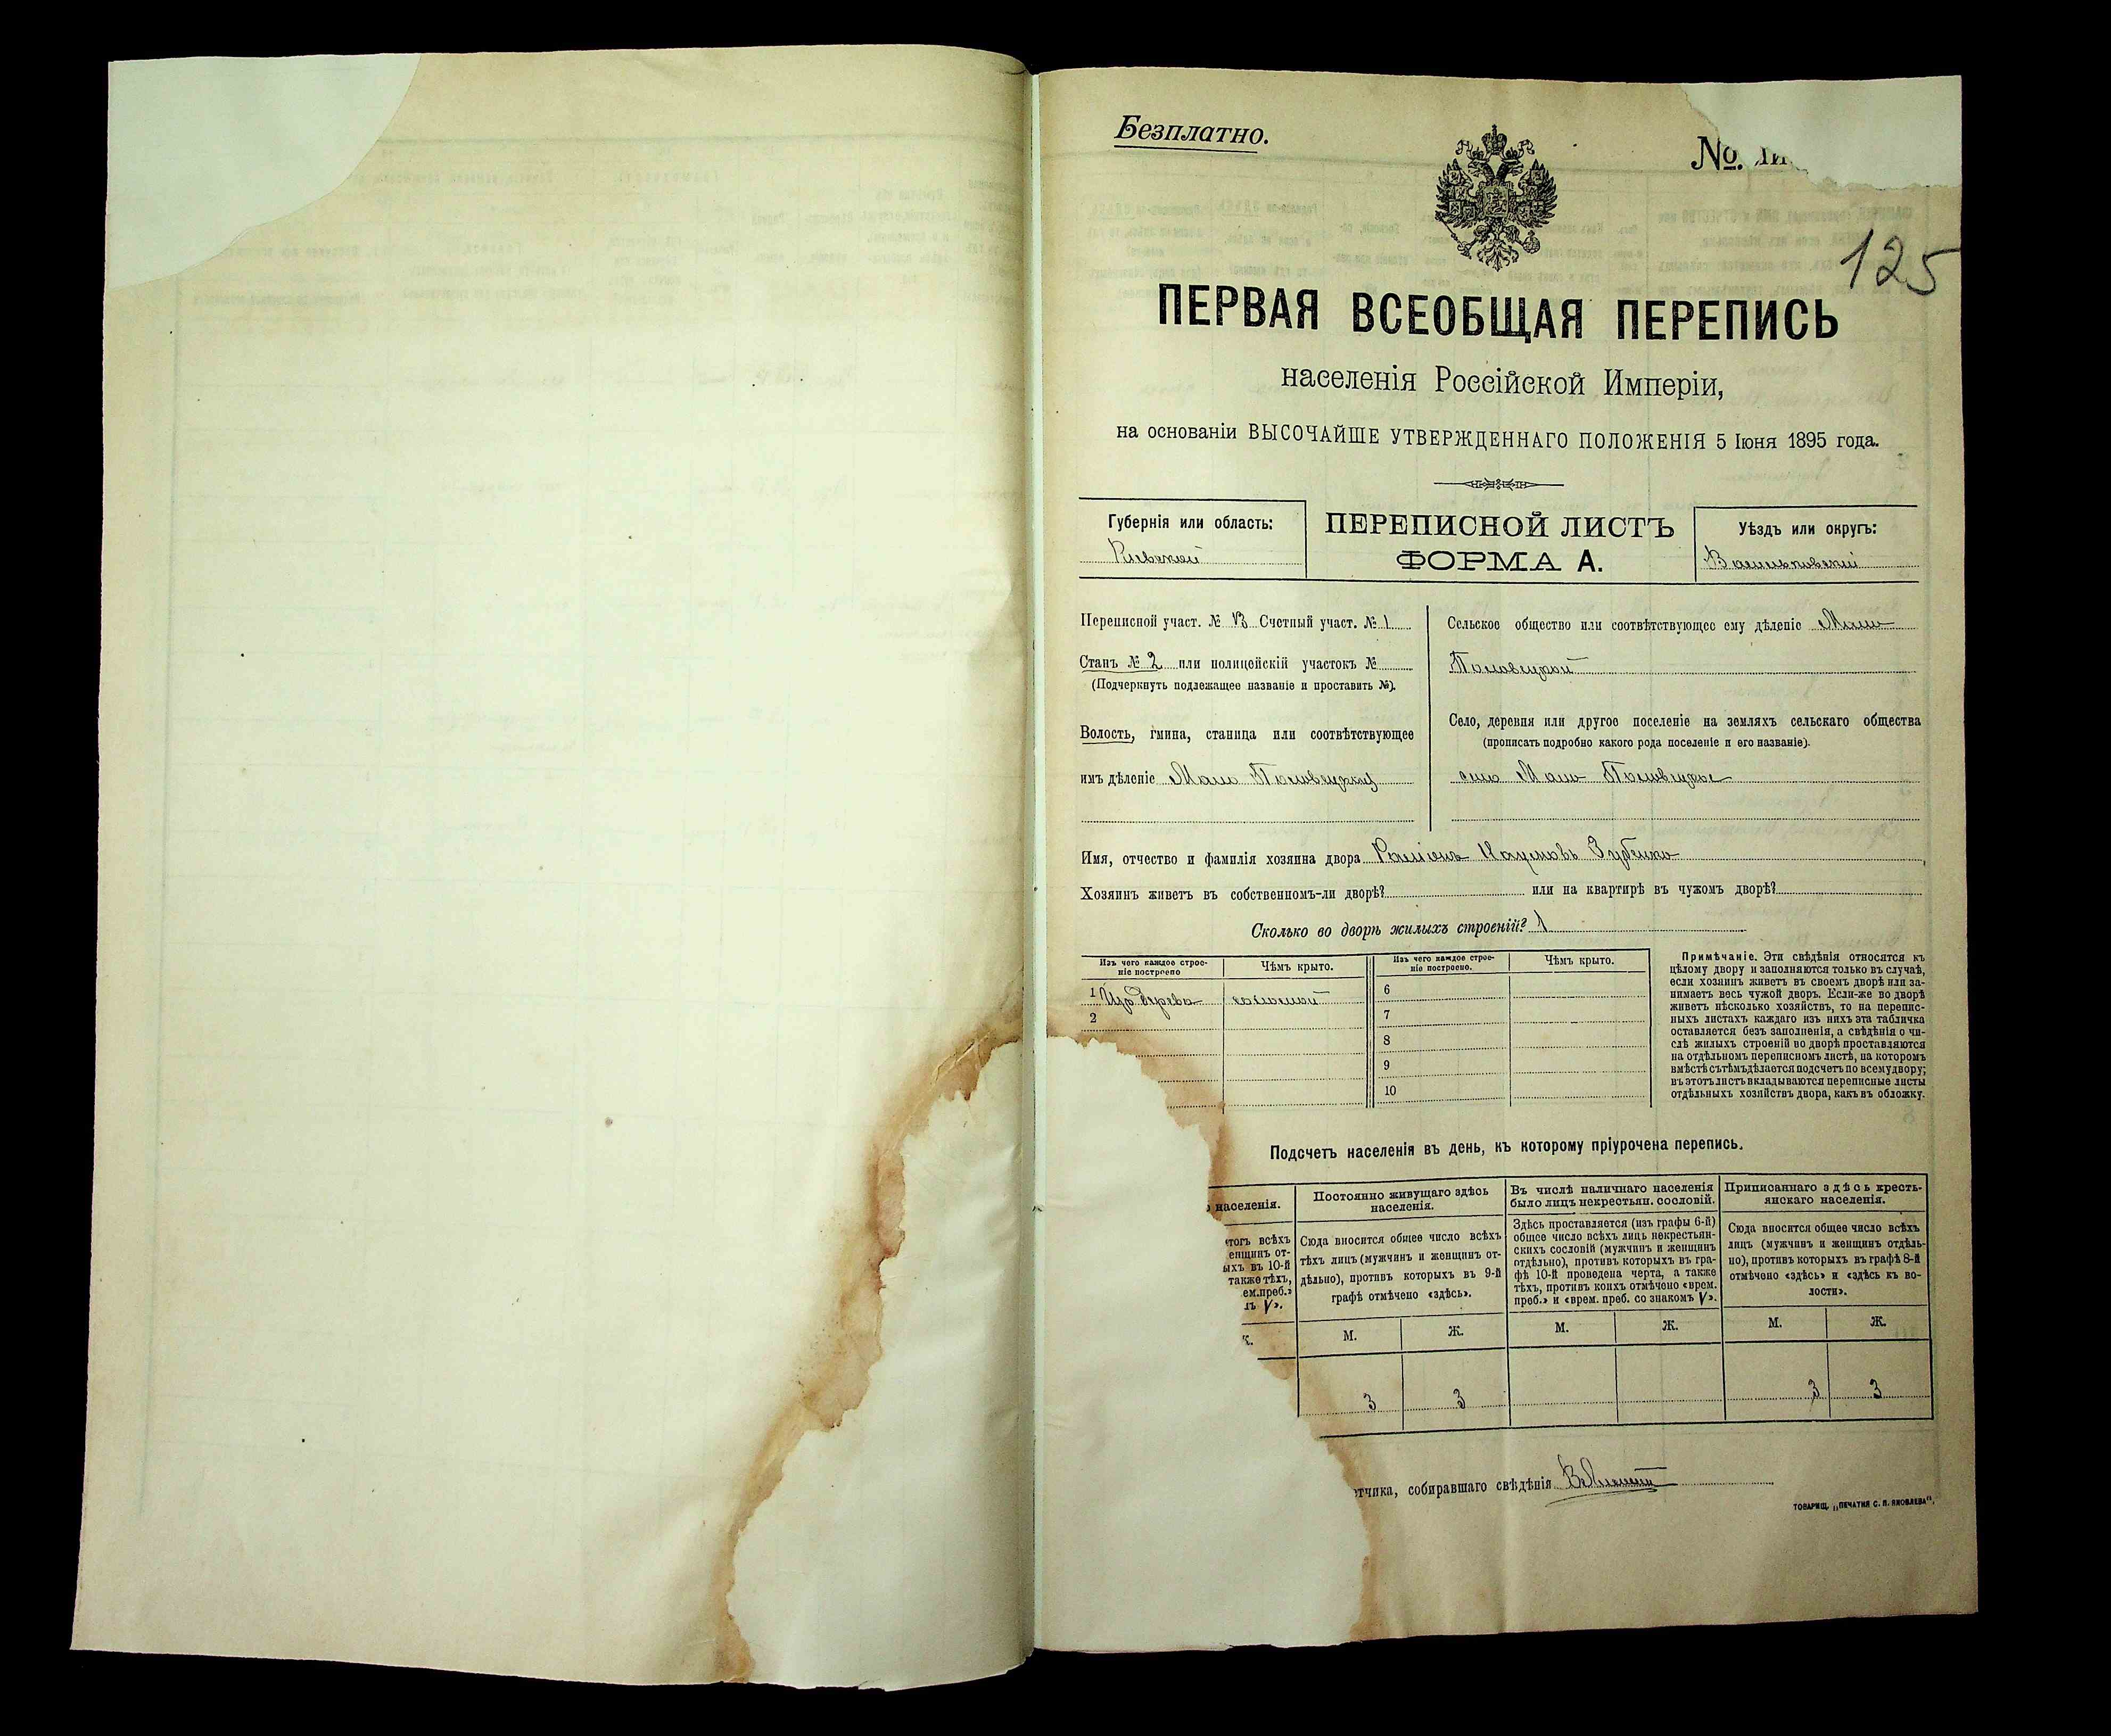 Безплатно.
№
125
ПЕРВАЯ ВСЕОБЩАЯ ПЕРЕПИСЬ
населенія Россійской Имперіи,
на основаніи ВЫСОЧАЙШЕ УТВЕРЖДЕННАГО ПОЛОЖЕНІЯ 5 Іюня 1895 года.
Губернія или область:
Кіевской
ПЕРЕПИСНОЙ ЛИСТЪ
ФОРМА А.
Уѣздъ или округъ:
Васильковскій
Переписной участ. № Счетный участ. № 1
Станъ № 2 или полицейскій участокъ №
(Подчеркнуть подлежащее названіе и проставить №).
Волость, гмина, станица или соотвѣтствующее
имъ дѣленіе Мало Половецкой
Сельское общество или соотвѣтствующее ему дѣленіе Мало
Половецкой
Село, деревня или другое поселеніе на земляхъ сельскаго общества
(прописать подробно какого рода поселеніе и его названіе).
село Мало Половецкое
Имя, отчество и фамилія хозяина двора Наумовъ Зубенко
Хозяинъ живетъ въ собственномъ-ли дворѣ? или на квартирѣ въ чужомъ дворѣ?
Сколько во дворѣ жилыхъ строеній? 1
Изъ чего каждое строе-
ніе построено
Чѣмъ крыто.
Изъ чего каждое строе-
ніе построено.
Чѣмъ крыто.
1 Изъ дерева соломой
2
6
7
8
9
10
Примѣчаніе. Эти свѣдѣнія относятся къ
цѣлому двору и заполняются только въ случаѣ,
если хозяинъ живетъ въ своемъ дворѣ или за-
нимаетъ весь чужой дворъ. Если-же во дворѣ
живетъ нѣсколько хозяйствъ, то на перепис-
ныхъ листахъ каждаго изъ нихъ эта табличка
оставляется безъ заполненія, а свѣдѣнія о чи-
слѣ жилыхъ строеній во дворѣ проставляются
на отдѣльномъ переписномъ листѣ, на которомъ
вмѣстѣ съ тѣмъ дѣлается подсчетъ по всему двору;
въ этотъ листъ вкладываются переписные листы
отдѣльныхъ хозяйствъ двора, какъ въ обложку.
Подсчетъ населенія въ день, къ которому пріурочена перепись.
населенія.
тогъ всѣхъ
енщинъ от-
ыхъ въ 10-й
также тѣхъ,
ем.преб.»
ъ V».
Ж.
Постоянно живущаго здѣсь
населенія.
Сюда вносится общее число всѣхъ
тѣхъ лицъ (мужчинъ и женщинъ от-
дѣльно), противъ которыхъ въ 9-й
графѣ отмѣчено «здѣсь».
М. Ж.
3 3
Въ числѣ наличнаго населенія
было лицъ некрестьян. сословій.
Здѣсь проставляется (изъ графы 6-й)
общее число всѣхъ лицъ некрестьян-
скихъ сословій (мужчинъ и женщинъ
отдѣльно), противъ которыхъ въ гра-
фѣ 10-й проведена черта, а также
тѣхъ, противъ коихъ отмѣчено «врем.
преб.» и «врем. преб. со знакомъ V».
М. Ж.
Приписаннаго здѣсь кресть-
янскаго населенія.
Сюда вносится общее число всѣхъ
лицъ (мужчинъ и женщинъ отдѣль-
но), противъ которыхъ въ графѣ 8-й
отмѣчено «здѣсь» и «здѣсь къ во-
лости».
М. Ж.
3 3
етчика, собиравшаго свѣдѣнія
ТОВАРИЩ. „ПЕЧАТНЯ С. П. ЯКОВЛЕВА".